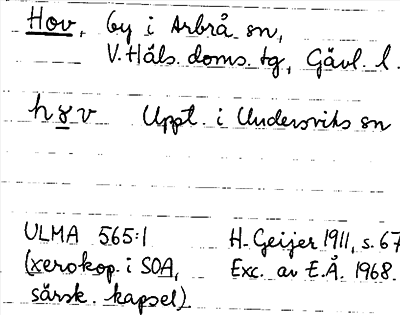 Hov, by i Arbrå sn,
V. Häls. doms. tg, Gävl. l.
hɤv Uppt. i Undersviks sn
ULMA 565:1 H. Geijer 1911, s. 67
(xerokop. i SOA, Exc. av E.Å. 1968.
särsk. kapsel)